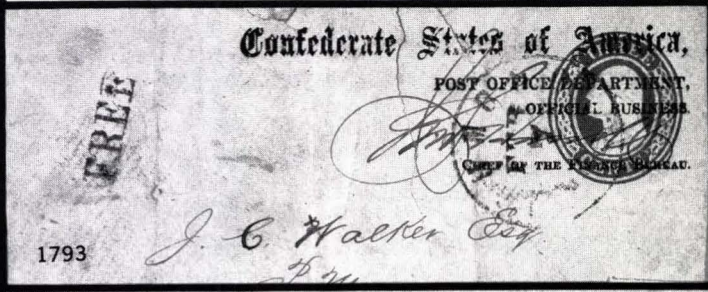 Confederate States of America,
POST OFFICE DEPARTMENT,
OFFICIAL BUSINESS.
CHIEF OF THE FINANCE BUREAU.
FREE
J. C. Walker Esq
P. M.
1793